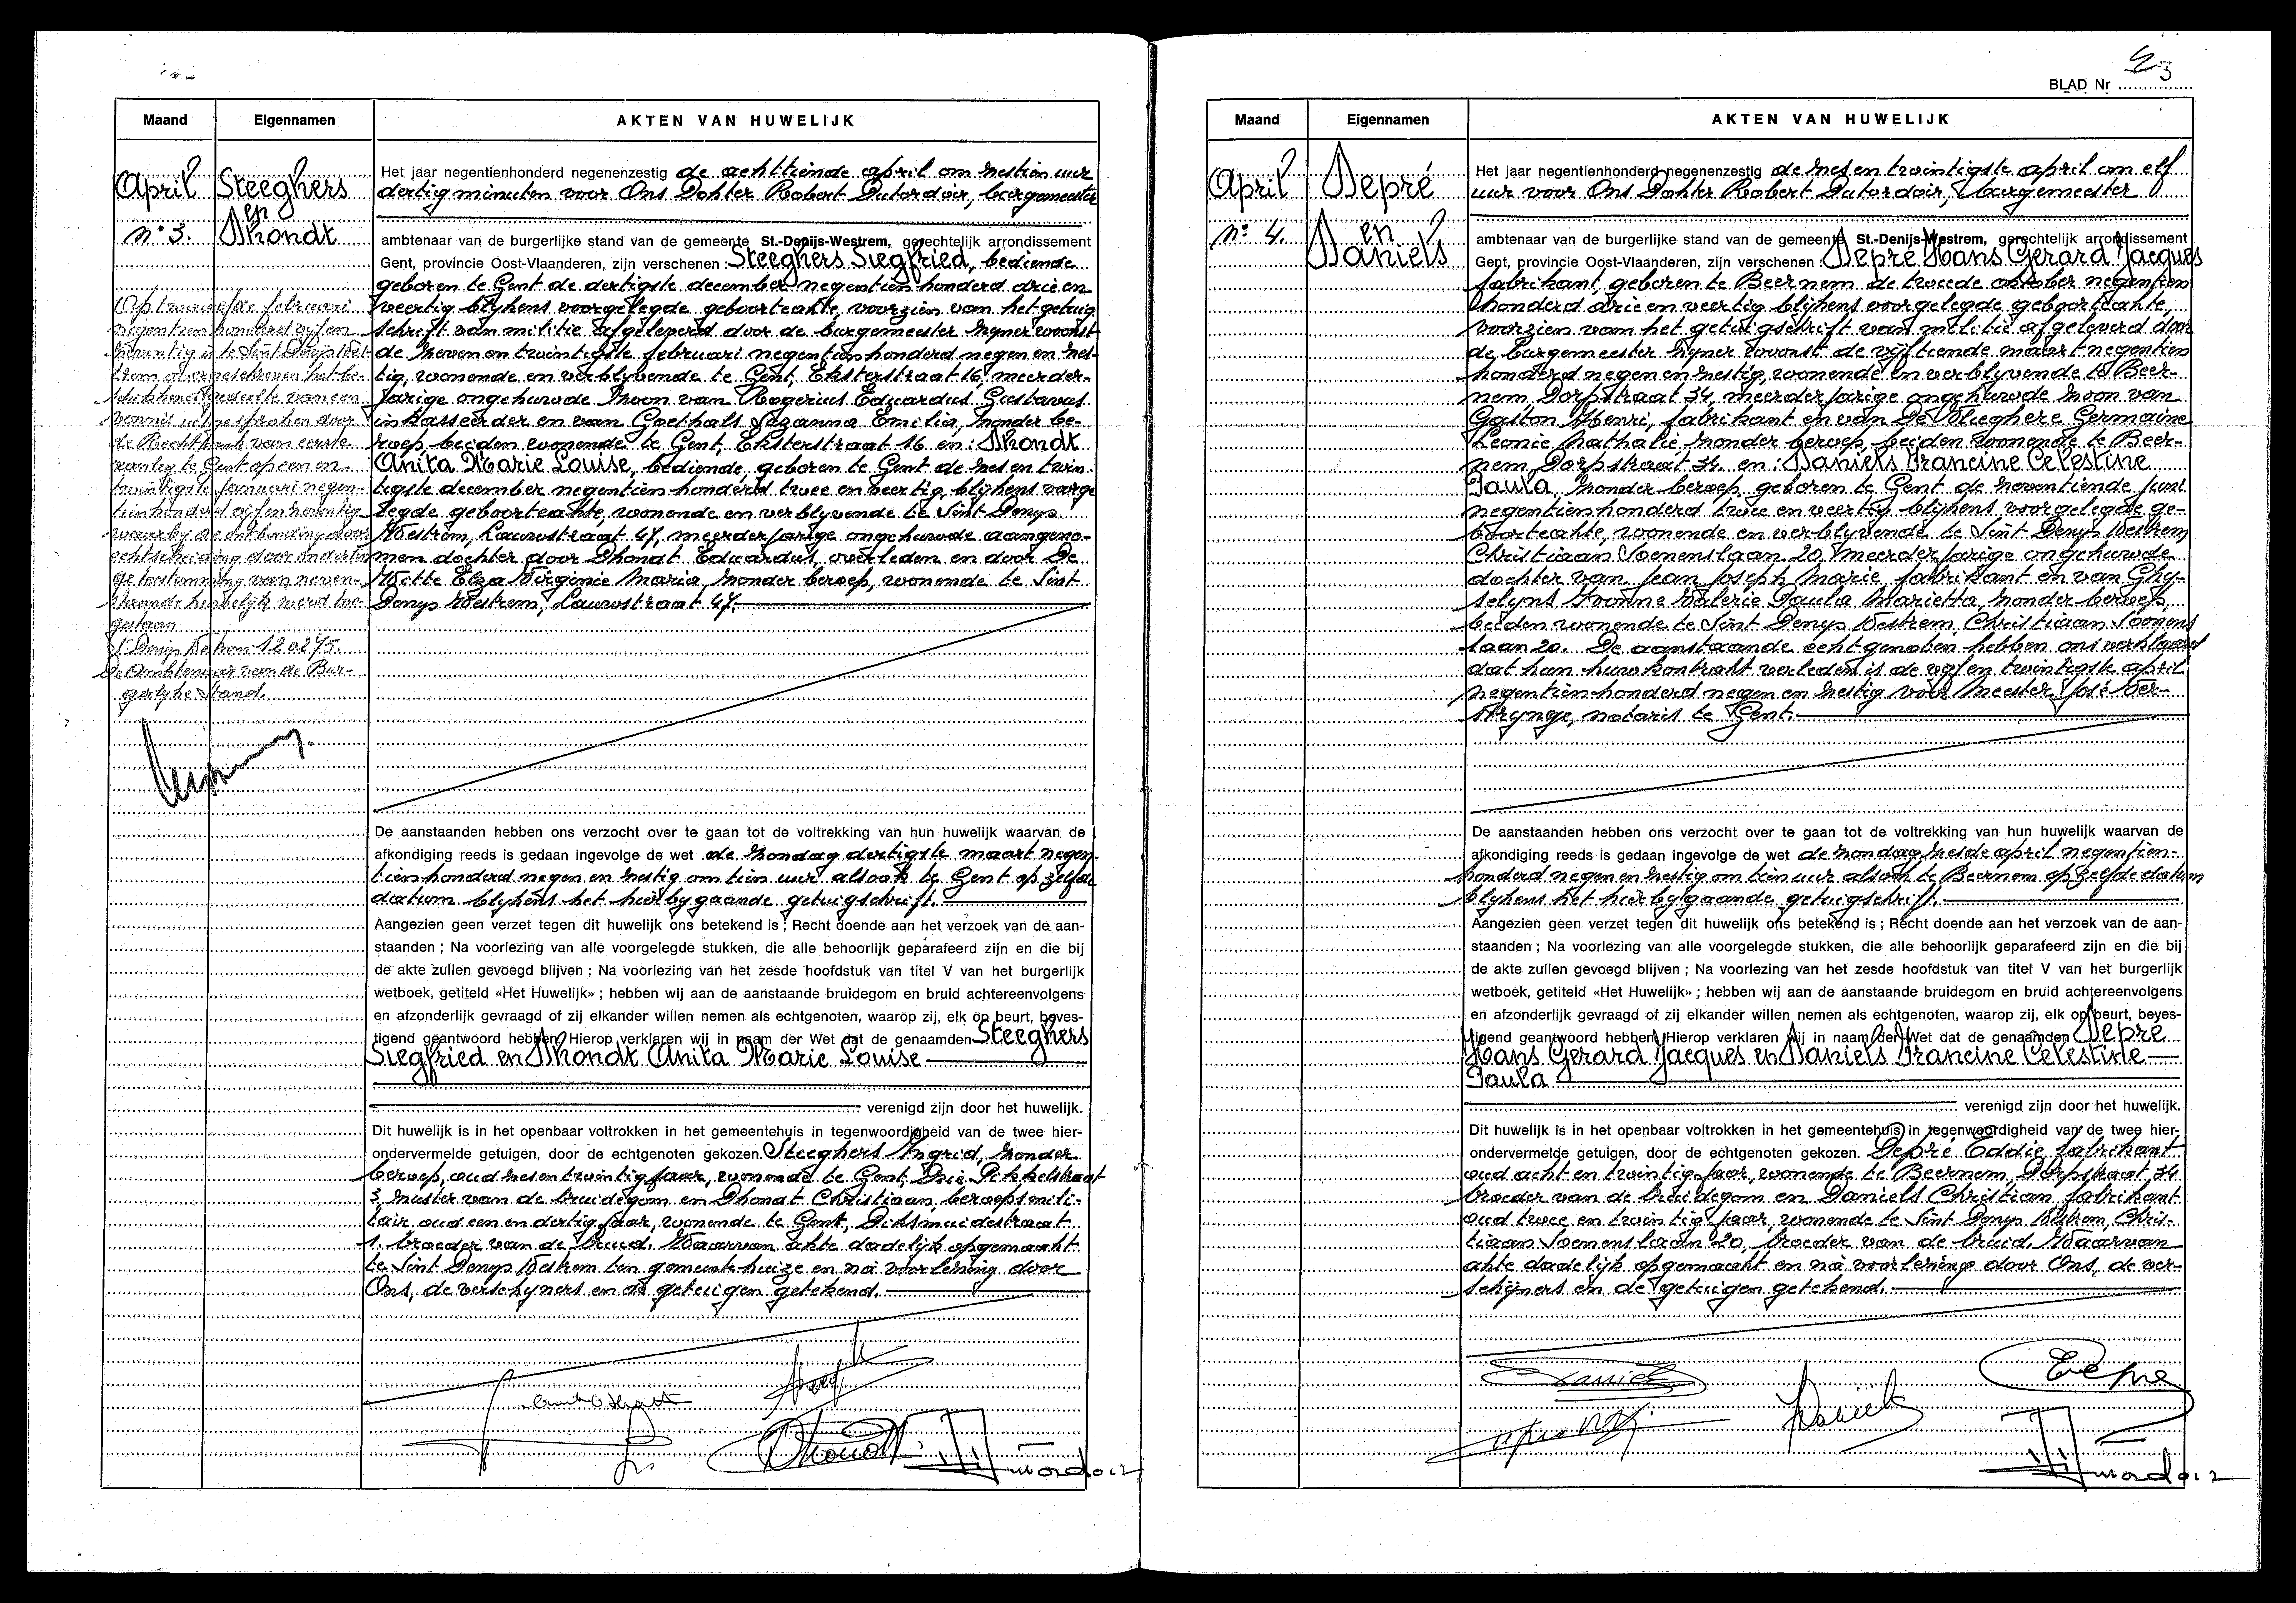 Maand
Eigennamen
AKTEN VAN HUWELIJK
April
Steeghers
en
Dhondt
n° 3.
Het jaar negentienhonderd negenenzestig de achttiende april om zestien uur
dertig minuten voor Ons Dokter Robert Dutordoir, burgemeester
ambtenaar van de burgerlijke stand van de gemeente St.-Denijs-Westrem, gerechtelijk arrondissement
Gent, provincie Oost-Vlaanderen, zijn verschenen : Steeghers Siegfried, bediende
geboren te Gent de dertigste december negentien honderd drie en
veertig blijkens voorgelegde geboorteakte, voorzien van het getuig
schrift van militie afgeleverd door de burgemeester zijner woonst
de zeven en twintigste februari negentienhonderd negen en zes-
tig, wonende en verblyvende te Gent, Eksterstraat 16, meerder-
jarige ongehuwde zoon van Rogerius Eduardus Gustavus
inkasseerder en van Goethals Suzanna Emilia, zonder be-
roep, beiden wonende te Gent, Eksterstraat 16 en: Dhondt
Anita Marie Louise, bediende, geboren te Gent de zes en twin-
tigste december negentien honderd twee en veertig, blijkens voorge
legde geboorteakte, wonende en verblyvende te Sint Denys
Westrem, Lauwstraat 47, meerderjarige ongehuwde aangeno-
men dochter door Dhondt Eduardus, overleden en door De
Witte Elza Virginie Maria, zonder beroep, wonende te Sint
Denys Westrem, Lauwstraat 47.
Op twaalfde februari
negentien honderd vijf en
zeventig is te Sint Denijs West-
trem overgeschreven het be-
schikkend gedeelte van een
vonnis uitgesproken door
de Rechtbank van eerste
aanleg te Gent op een en
twintigste januari negen-
tienhonderd vijf en zeventig
waarby de ontbinding door
echtscheiding door onderlin
ge toestemming van neven-
staande huwelijk werd toe-
gestaan
St Denijs Westrem 12 02 75.
De Ambtenaar van de Bur-
gerlyke Stand.
De aanstaanden hebben ons verzocht over te gaan tot de voltrekking van hun huwelijk waarvan de
afkondiging reeds is gedaan ingevolge de wet de zondag dertigste maart negen-
tien honderd negen en zestig om tien uur alsook te Gent op zelfde
datum blijkens het hierbygaande getuigschrift.
Aangezien geen verzet tegen dit huwelijk ons betekend is ; Recht doende aan het verzoek van de aan-
staanden ; Na voorlezing van alle voorgelegde stukken, die alle behoorlijk geparafeerd zijn en die bij
de akte zullen gevoegd blijven ; Na voorlezing van het zesde hoofdstuk van titel V van het burgerlijk
wetboek, getiteld «Het Huwelijk» ; hebben wij aan de aanstaande bruidegom en bruid achtereenvolgens
en afzonderlijk gevraagd of zij elkander willen nemen als echtgenoten, waarop zij, elk op beurt, beves-
tigend geantwoord hebben. Hierop verklaren wij in naam der Wet dat de genaamden Steeghers
Siegfried en Dhondt Anita Marie Louise
verenigd zijn door het huwelijk.
Dit huwelijk is in het openbaar voltrokken in het gemeentehuis in tegenwoordigheid van de twee hier-
ondervermelde getuigen, door de echtgenoten gekozen. Steeghers Ingrid, zonder
beroep, oud zes en twintig jaar, wonende te Gent, Drie Pikkelstraat
3, zuster van de bruidegom en Dhondt Christiaan, beroepsmili-
tair oud een en dertig jaar, wonende te Gent, Diksmuidestraat
1, broeder van de bruid. Waarvan akte dadelijk opgemaakt
te Sint Denys Westrem ten gemeentehuize en na voorlezing door
Ons, de verschyners en de getuigen getekend.
Dhondt
Dutordoir
BLAD Nr
Maand
Eigennamen
AKTEN VAN HUWELIJK
April
Depré
en
Daniels
n° 4.
Het jaar negentienhonderd negenenzestig de zes en twintigste april om elf
uur voor Ons Dokter Robert Dutordoir, burgemeester
ambtenaar van de burgerlijke stand van de gemeente St.-Denijs-Westrem, gerechtelijk arrondissement
Gent, provincie Oost-Vlaanderen, zijn verschenen : Depré Hans Gerard Jacques
fabrikant, geboren te Beernem de tweede oktober negentien
honderd drie en veertig blijkens voorgelegde geboorteakte,
voorzien van het getuigschrift van militie afgeleverd door
de burgemeester zijner woonst de vijftiende maart negentien
honderd negen en zestig, wonende en verblyvende te Beer-
nem, Dorpstraat 34, meerderjarige ongehuwde zoon van
Gaston Henri, fabrikant en van De Vlieghere Germaine
Leonie Nathalie, zonder beroep, beiden wonende te Beer-
nem, Dorpstraat 34 en: Daniels Francine Celestine
Paula, zonder beroep, geboren te Gent de zeventiende juni
negentienhonderd twee en veertig blijkens voorgelegde ge-
boorteakte, wonende en verblyvende te Sint Denys Westrem
Christiaan Soenenslaan 20, meerderjarige ongehuwde
dochter van Jean Joseph Marie, fabrikant en van Ghy-
selyns Yvonne Valerie Paula Marietta, zonder beroep,
beiden wonende te Sint Denys Westrem, Christiaan Soenens
laan 20. De aanstaande echtgenoten hebben ons verklaard
dat hun huwkontrakt verleden is de vijf en twintigste april
negentien honderd negen en zestig voor Meester José Ver-
strynge, notaris te Gent.
De aanstaanden hebben ons verzocht over te gaan tot de voltrekking van hun huwelijk waarvan de
afkondiging reeds is gedaan ingevolge de wet de zondag zesde april negentien-
honderd negen en zestig om tien uur alsook te Beernem op zelfde datum
blijkens het hierbijgaande getuigschrift.
Aangezien geen verzet tegen dit huwelijk ons betekend is ; Recht doende aan het verzoek van de aan-
staanden ; Na voorlezing van alle voorgelegde stukken, die alle behoorlijk geparafeerd zijn en die bij
de akte zullen gevoegd blijven ; Na voorlezing van het zesde hoofdstuk van titel V van het burgerlijk
wetboek, getiteld «Het Huwelijk» ; hebben wij aan de aanstaande bruidegom en bruid achtereenvolgens
en afzonderlijk gevraagd of zij elkander willen nemen als echtgenoten, waarop zij, elk op beurt, beves-
tigend geantwoord hebben. Hierop verklaren wij in naam der Wet dat de genaamden Depré
Hans Gerard Jacques en Daniels Francine Celestine
Paula
verenigd zijn door het huwelijk.
Dit huwelijk is in het openbaar voltrokken in het gemeentehuis in tegenwoordigheid van de twee hier-
ondervermelde getuigen, door de echtgenoten gekozen. Depré Eddie, fabrikant
oud acht en twintig jaar, wonende te Beernem, Dorpstraat 34
broeder van de bruidegom en Daniels Christian, fabrikant
oud twee en twintig jaar, wonende te Sint Denys Westrem, Chris-
tiaan Soenenslaan 20, broeder van de bruid. Waarvan
akte dadelijk opgemaakt en na voorlezing door Ons, de ver-
schijners en de getuigen getekend.
Daniels
Depre
Daniels
Dutordoir